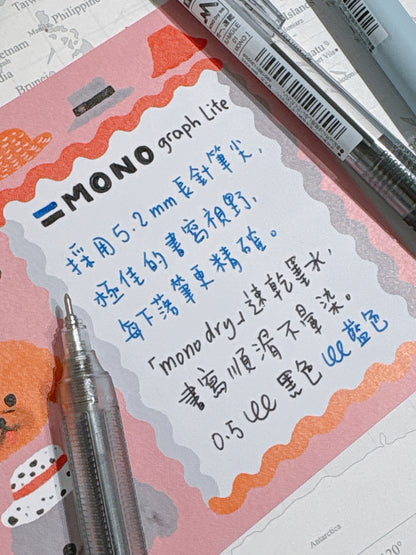 Taiwan
Philippines
Vietnam
Brunei
MONO graph Lite
採用5.2mm長針筆尖,
極佳的書寫視野,
每下落筆更精確。
「mono dry」速乾墨水,
書寫順滑不暈染。
0.5 黑色 藍色
Antarctica
120°